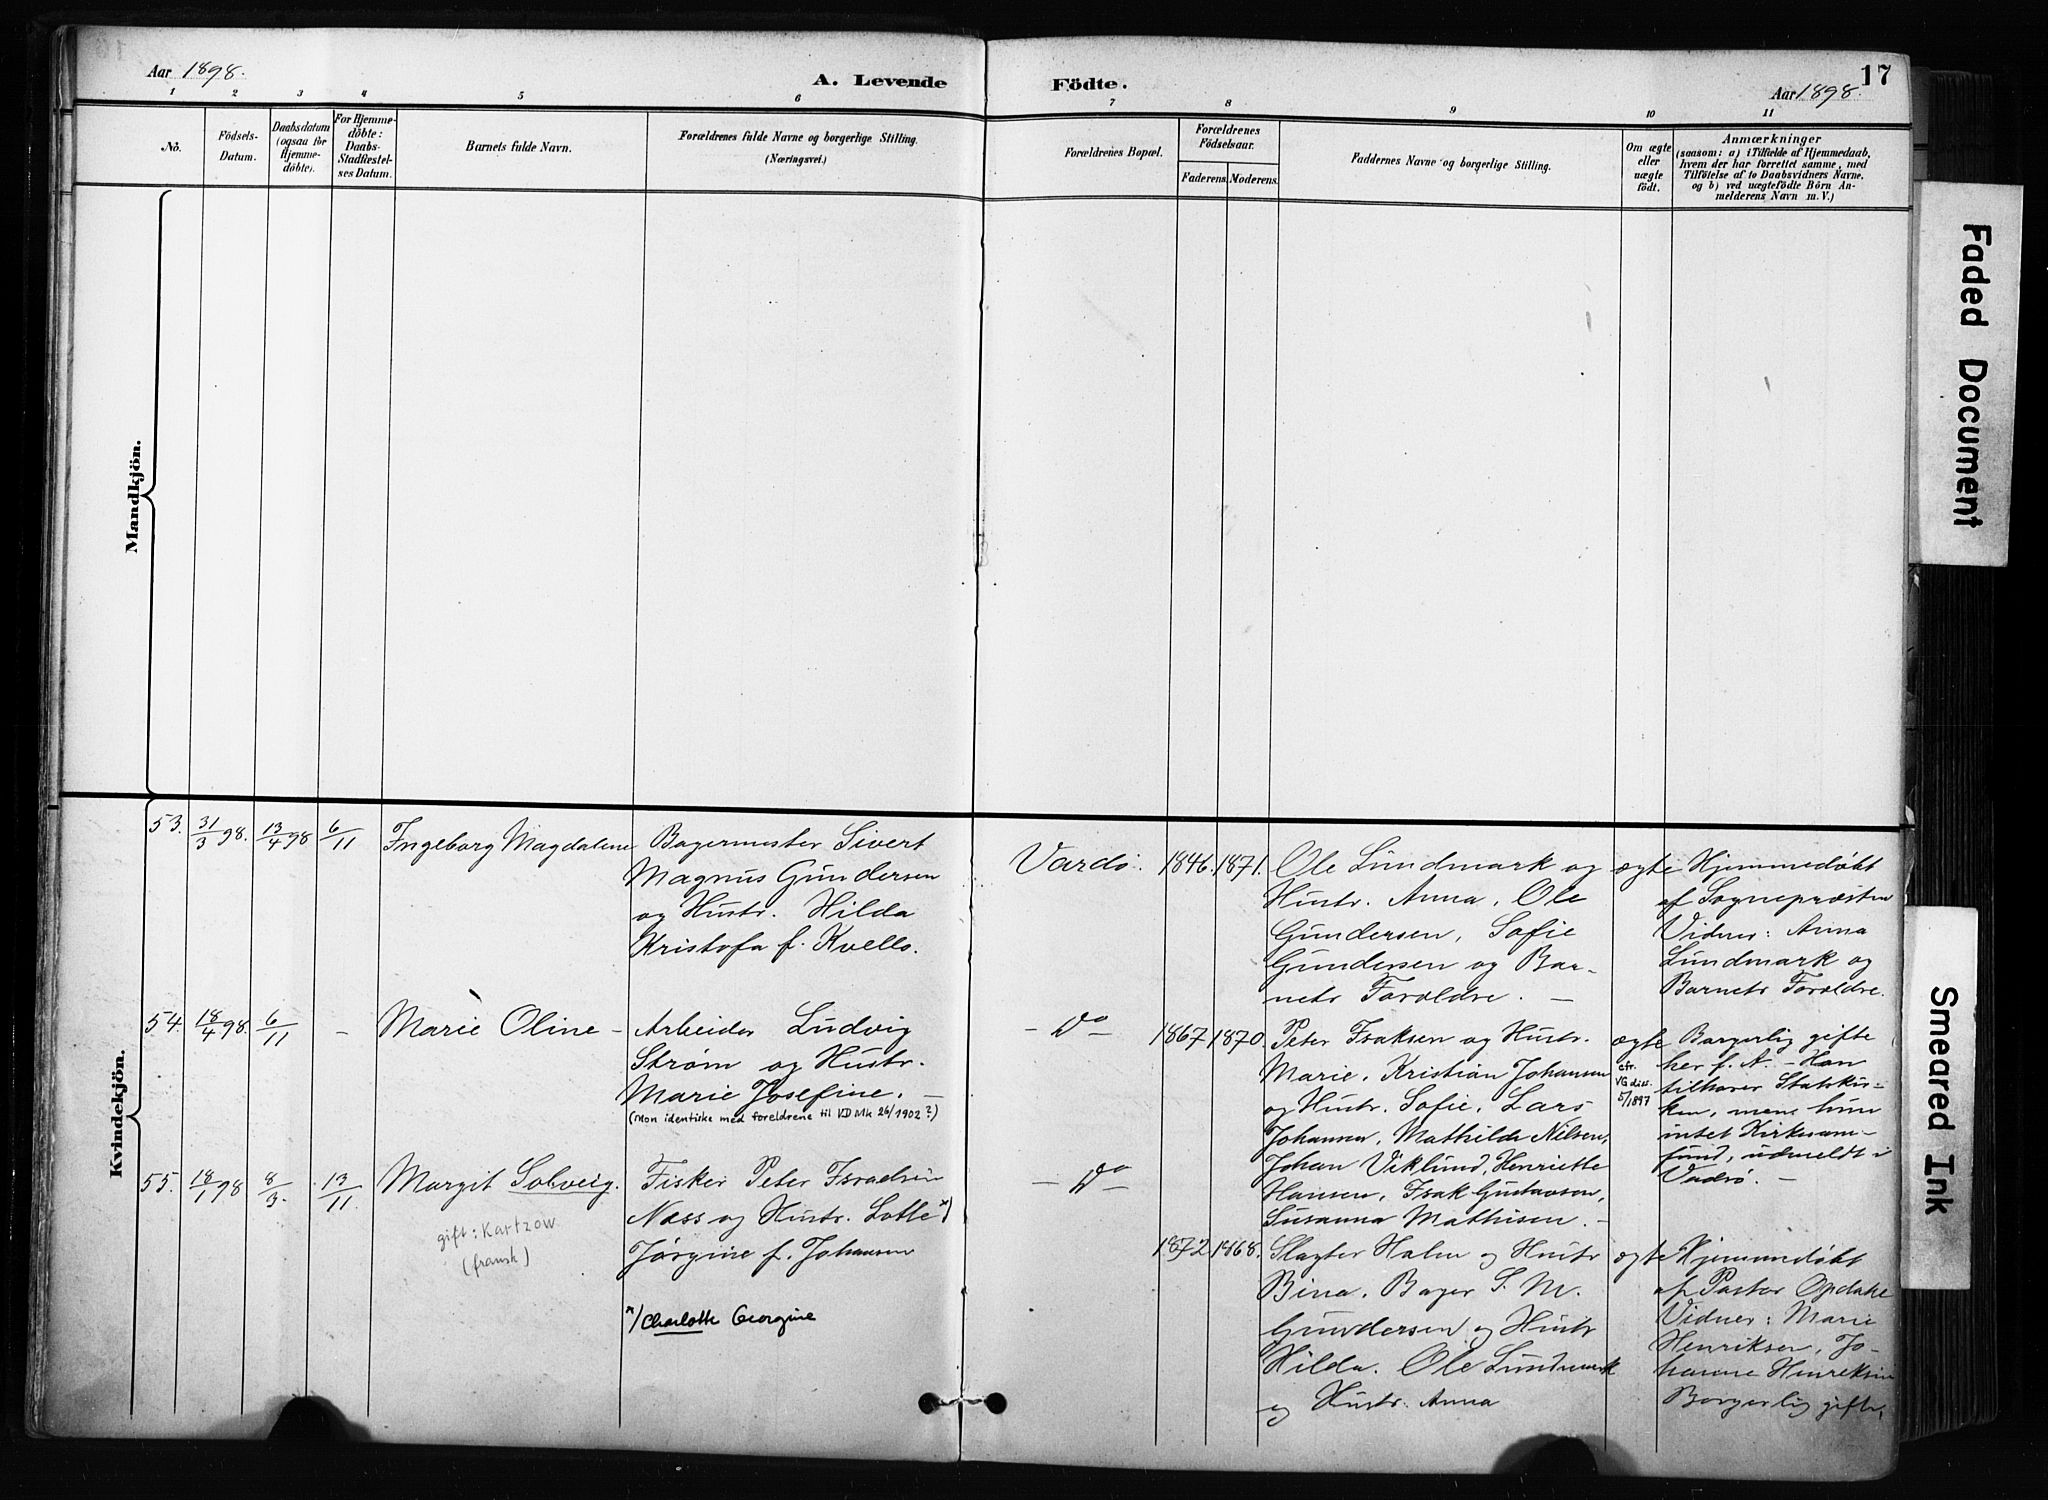 Aar 1898.
A. Levende
Födte.
Aar 1898.
17
1
2
3
4
5
6
7
8
9
10
11
No.
Födsels-
Datum.
Daabsdatum
(ogsaa for
Hjemme-
döbte).
For Hjemme-
döbte:
Daabs-
Stadfæstel-
ses Datum.
Barnets fulde Navn.
Forældrenes fulde Navne og borgerlige Stilling.
(Næringsvei.)
Forældrenes Bopæl.
Forældrenes
Födselsaar.
Faderens.
Moderens.
Faddernes Navne og borgerlige Stilling.
Om ægte
eller
uægte
födt.
Anmærkninger
(saasom: a) i Tilfælde af Hjemmedaab,
hvem der har forrettet samme, med
Tilföielse af to Daabsvidners Navne,
og b) ved uægtefödte Börn An-
melderens Navn m. V.)
Mandkjön.
Kvindekjön.
53.
31/3 98.
13/4 98
6/11
Ingeborg Magdalene
Bagermester Sivert
Magnus Gundersen
og Hustr. Hilda
Kristofa f. Kvello.
Vardö.
1846.
1871.
Ole Lundmark og
Hustr. Anna, Ole
Gundersen, Sofie
Gundersen og Bar-
nets Foreldre. —
ægte
Hjemmedøbt
af Sognepræsten
Vidner: Anna
Lundmark og
Barnets Foreldre.
54.
18/4 98.
6/11
-
Marie Oline -
Arbeider Ludvig
Strøm og Hustr.
Marie Josefine. —
(Mon identiske med foreldrene til KD Mk 26/1902?)
- Do -
1867
1870.
Peter Isaksen og Hustr.
Marie, Kristian Johansen
og Hustr. Sofie, Lars
Johansen, Mathilde Nilsen,
Johan Viklund, Henriette
Hansen, Isak Gustavsen,
Susanna Mathisen. -
ægte
cfr.
VG diss.
5/1897
Borgerlig gifte
her f. A. - Han
tilhører Statskir-
ken, mens hun
intet Kirkesam-
fund, udmeldt i
Vadsö. -
55.
18/1 98
8/3.
13/11.
Margit Solveig.
gift: Kartzow
(fransk)
Fisker Peter Israelsen
Næss og Hustr. Lotte*)
Jørgine f. Johansen
*) Charlotte Georgine
- Do -
1872
1868.
Slagter Holm og Hustr
Bina, Bager S. M.
Gundersen og Hustr
Hilda. Ole Lundmark
og Hustr. Anna
ægte
Hjemmedøbt
af Pastor Opdahl
Vidner: Marie
Henriksen, Jo-
hanne Henriksen
Borgerlig gifte,
Faded Document
Smeared Ink